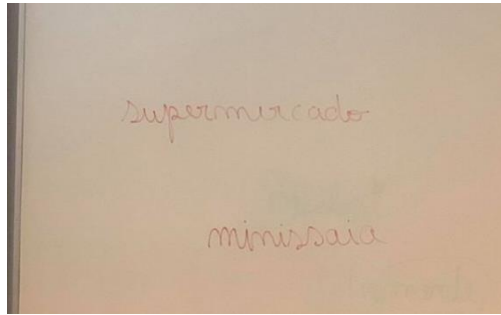 supermercado
minissaia